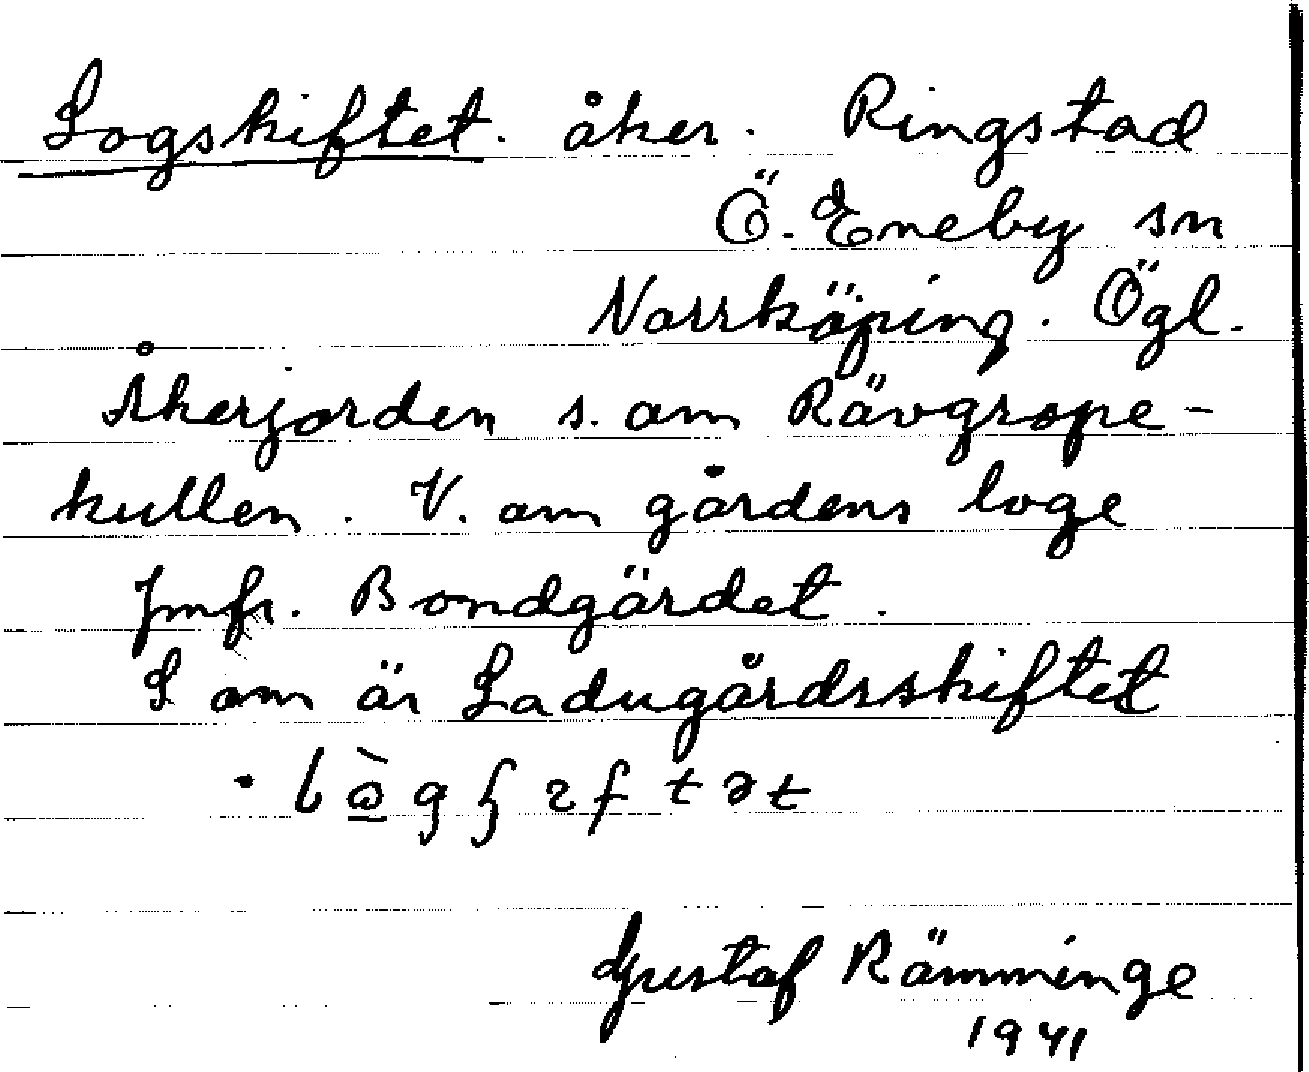 Logskiftet. åker. Ringstad
Ö. Eneby sn
Norrköping. Ögl.
Åkerjorden s. om Rävgrope-
kullen. V. om gårdens loge
Jmfr. Bondgärdet.
S om är Ladugårdsskiftet
Gustaf Rämminge
1941